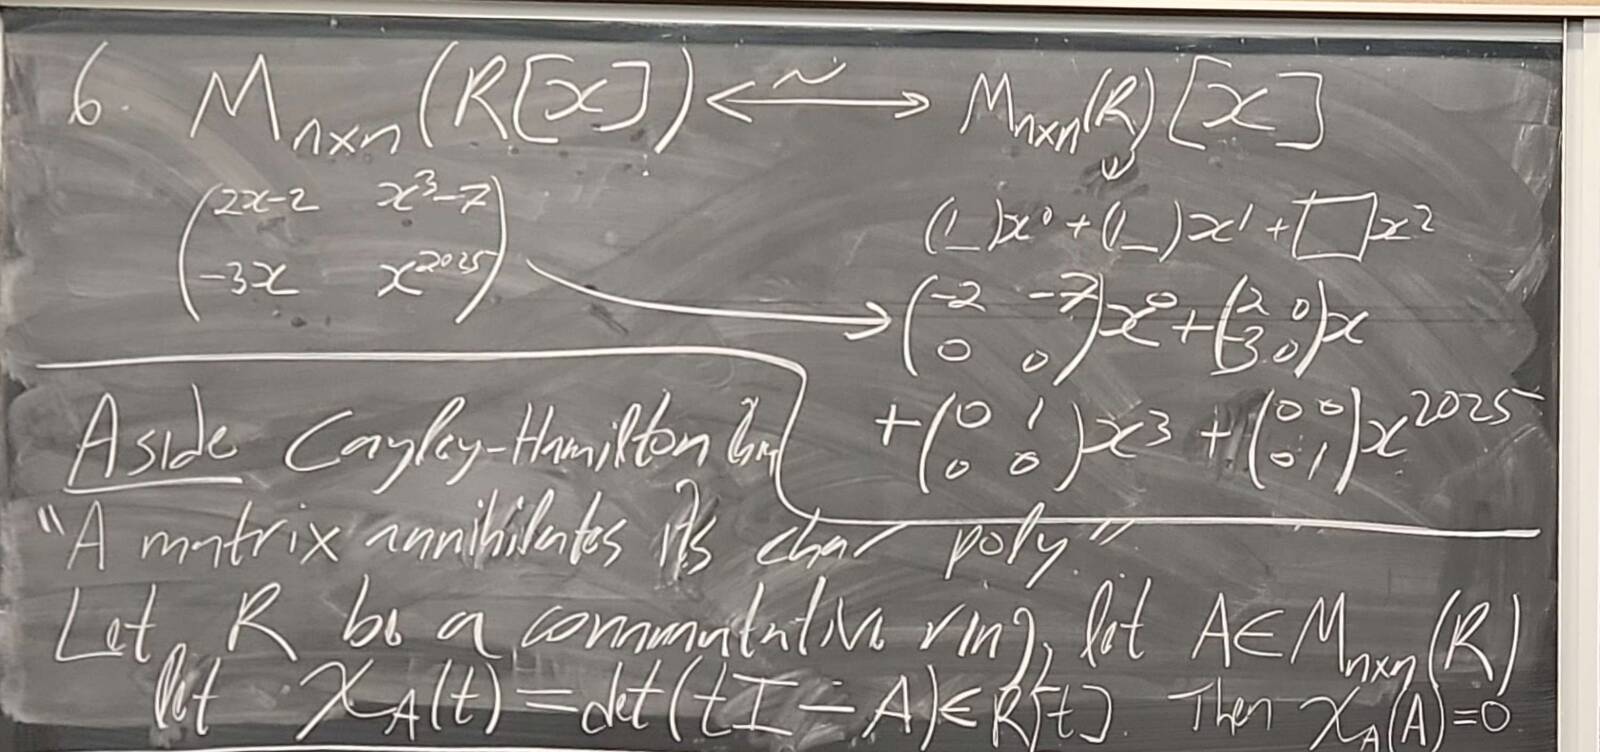 6. M_{n×n}(R[x]) <—~—> M_{n×n}(R)[x]
(2x-2 x³-7
-3x x^{2025})
( )x⁰ + ( )x¹ + □x²
→ (-2 -7
0 0)x⁰ + (2 0
-3 0)x
+ (0 1
0 0)x³ + (0 0
0 1)x^{2025}
Aside Cayley-Hamilton thm
"A matrix annihilates its char poly."
Let R be a commutative ring, let A∈M_{n×n}(R)
let χ_A(t) = det(tI - A) ∈ R[t]. Then χ_A(A)=0